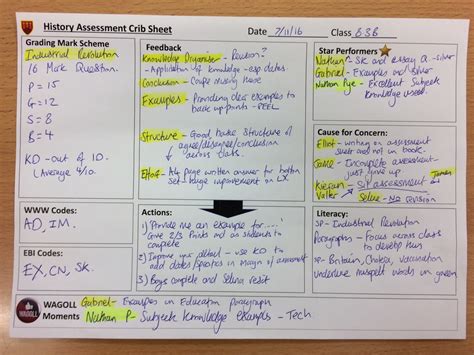 History Assessment Crib Sheet
Date 7/11/16 Class 8SB
Grading Mark Scheme
Industrial Revolution
16 Mark Question.
P = 15
G = 12
S = 8
B = 4
KO - out of 10.
(Average 4/10)
Feedback
Knowledge Organiser - Revision?
- Application of knowledge - esp dates.
Conclusion -
Examples - Providing clear examples to
back up points - PEEL
Structure - Good, house structure of
agree/disagree/conclusion
across class.
Effort - A4 page written answer for bottom
set - huge improvement on
Star Performers
Nathan - SK and essay Q - silver
Gabriel - Examples and silver
Nathan Pye - Excellent Subject
Knowledge used.
Cause for Concern:
Elliot - writing on assessment
sheet and not in book.
- Incomplete assessment -
just give up
Kieran - SIT assessment
James
Valter
Selina - NO REVISION
WWW Codes:
AD, IM.
EBI Codes:
EX, CN, SK.
Actions:
1) 'Provide me an example for.....'
Give 2/3 Points and as students to
complete
2) Improve your detail - use KO to
add dates/specifics in Margin of assessment
3) Boys complete and Selina resit
Literacy:
SP - Industrial Revolution
Paragraphs - Focus across class
to develop this
SP - Britain, Cholera, vaccination
Underline misspelt words in green
WAGOLL
Moments
Gabriel - Examples in Education paragraph
Nathan P - Subject Knowledge examples - Tech